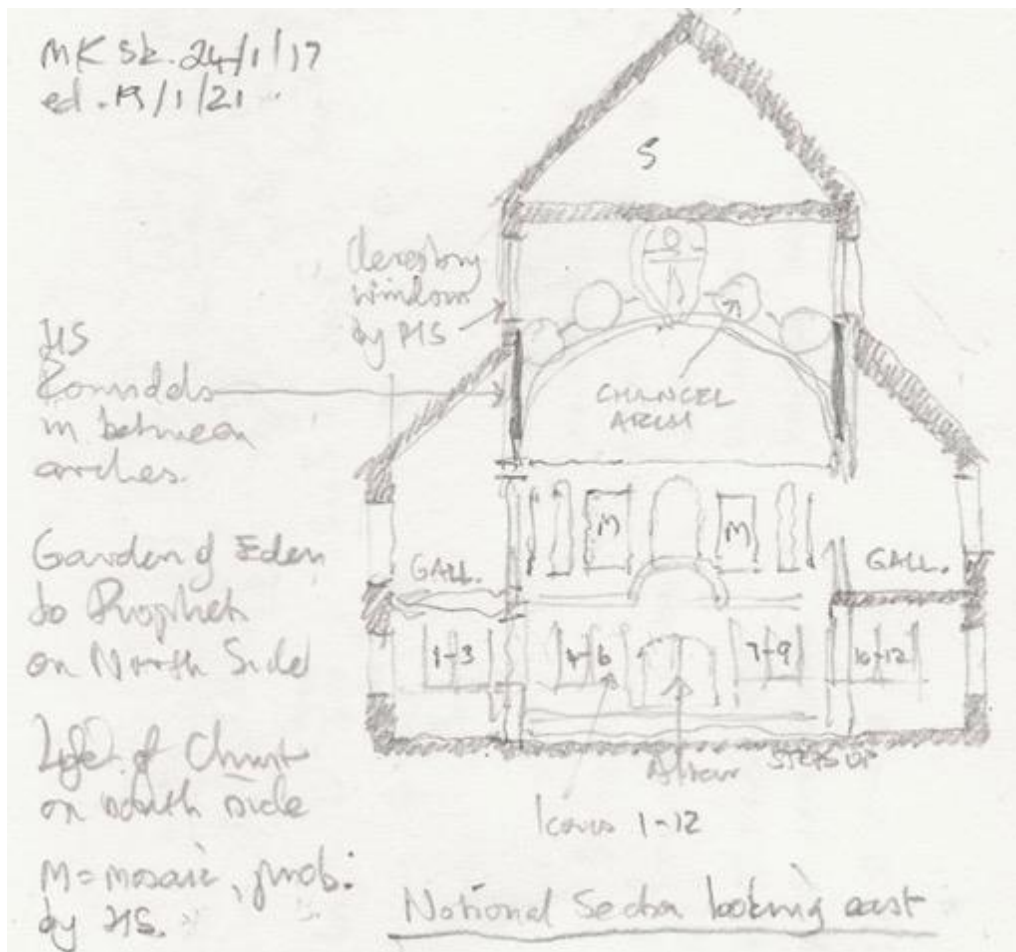 MK Sk. 24/1/17
ed. 19/1/21
S
Clerestory
window
by HS
HS
Roundels
in between
arches.
CHANCEL
ARCH
M
M
GALL.
GALL.
Garden of Eden
to Prophets
on North Side
1-3
4-6
7-9
10-12
Life of Christ
on south side
Altar
STEPS UP
Icons 1-12
M = mosaic, prob:
by HS.
Notional Section looking east